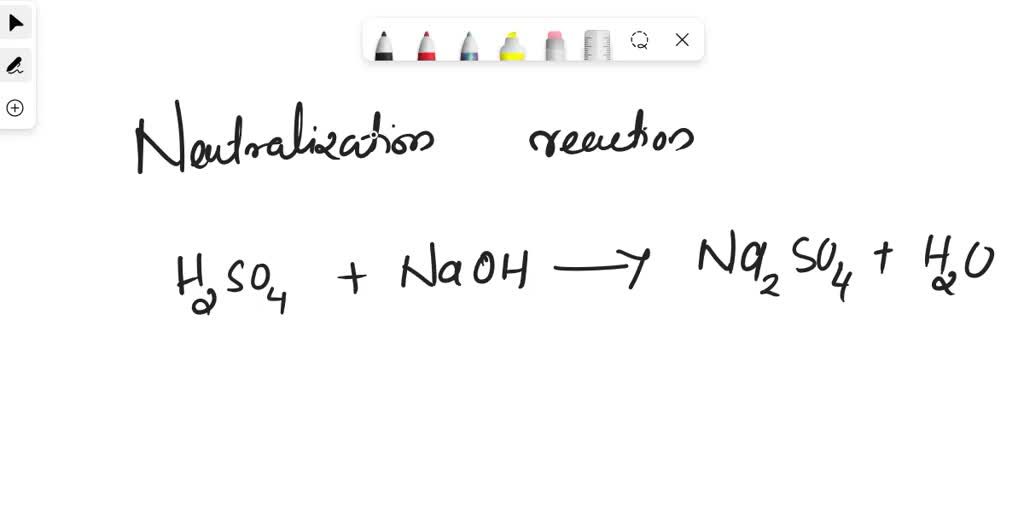 Neutralization reaction
H₂SO₄ + NaOH → Na₂SO₄ + H₂O